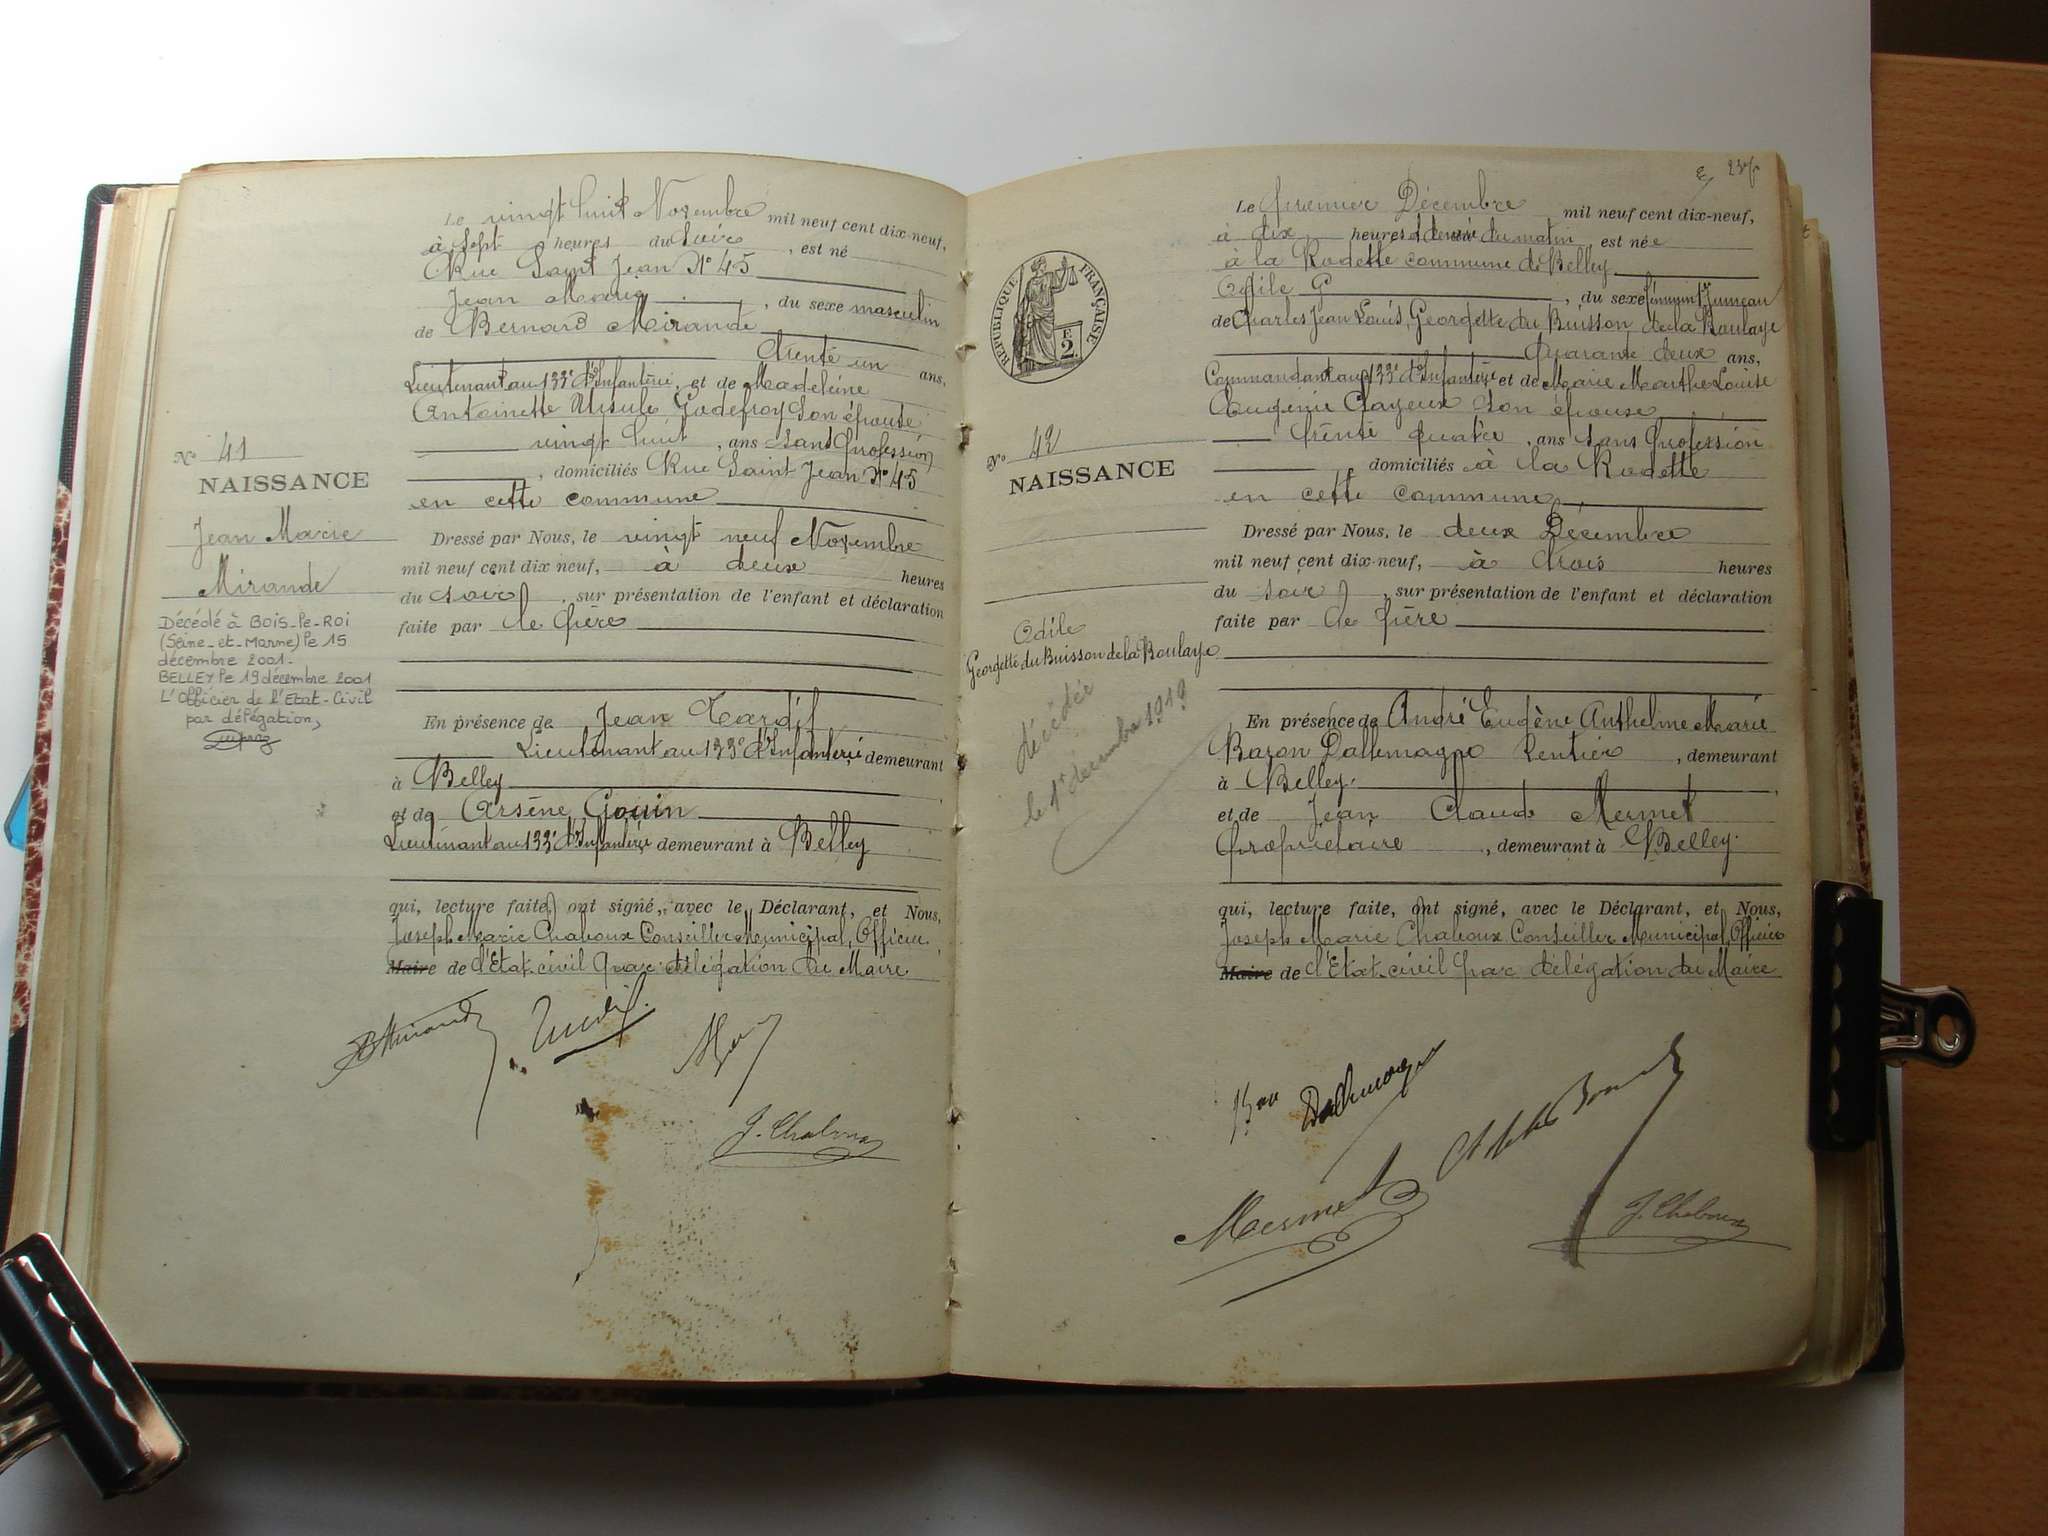 Le vingt huit Novembre mil neuf cent dix-neuf,
à Sept heures du Soir, est né
Rue Saint Jean N° 45
Jean Marie, du sexe masculin
de Bernard Mirande
trente un ans,
Lieutenant au 133e d'Infanterie, et de Madeleine
Antoinette Ursule Godefroy Son épouse
vingt huit, ans Sans Profession
, domiciliés Rue Saint Jean N° 45
en cette commune
N° 41
NAISSANCE
Jean Marie
Mirande
Décédé à BOIS-Le-ROI
(Seine-et-Marne) le 15
décembre 2001.
BELLEY le 19 décembre 2001
L'Officier de l'Etat-Civil
par délégation,
Dressé par Nous, le vingt neuf Novembre
mil neuf cent dix neuf, à deux heures
du soir, sur présentation de l'enfant et déclaration
faite par le Père
En présence de Jean Tardif
Lieutenant au 133e d'Infanterie demeurant
à Belley
et de Arsène Gouin
Lieutenant au 133e d'Infanterie demeurant à Belley
qui, lecture faite, ont signé, avec le Déclarant, et Nous,
Joseph Marie Chaboux Conseiller Municipal, Officier
Maire de l'Etat-civil par délégation du Maire
J. Chaboux
237
Le premier Décembre mil neuf cent dix-neuf,
à dix heures et demie du matin, est née
à la Rodette commune de Belley
Odile G, du sexe féminin Jumeau
de Charles Jean Louis, Georgette du Buisson de la Boulaye
Quarante deux ans,
Commandant au 133e d'Infanterie et de Marie Marthe Louise
Eugenie Cayeux Son épouse
trente quatre, ans Sans Profession
, domiciliés à la Rodette
en cette commune
REPUBLIQUE FRANÇAISE
E.
2.
N° 42
NAISSANCE
Odile
Georgette du Buisson de la Boulaye
décédée
le 1er décembre 1919
Dressé par Nous, le deux Décembre
mil neuf cent dix-neuf, à trois heures
du soir, sur présentation de l'enfant et déclaration
faite par le Père
En présence de André Eugène Anthelme Marie
Baron Dallemagne Rentier, demeurant
à Belley.
et de Jean Claude Mermet
Propriétaire, demeurant à Belley.
qui, lecture faite, ont signé, avec le Déclarant, et Nous,
Joseph Marie Chaboux Conseiller Municipal, Officier
Maire de l'Etat-civil par délégation du Maire
Bon Dallemagne
Mermet
J. Chaboux